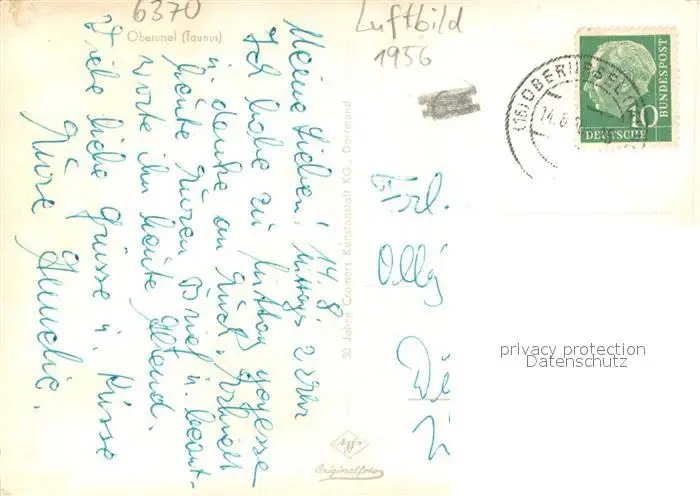 6370
Oberursel (Taunus)
Luftbild
1956
Meine Lieben! 14.8.
Mittags 2 Uhr
Ich habe zu Mittag gegessen
u. denke an Euch. Erhielt
heute Euren Brief u. beant-
worte ihn heute Abend.
Viele liebe Grüsse u. Küsse
Eure
50 Jahre Cramers Kunstanstalt KG., Dortmund
Agfa
Originalfoto
(16) OBERURSEL
14.8.
10
DEUTSCHE
BUNDESPOST
Frl.
Olly
privacy protection
Datenschutz